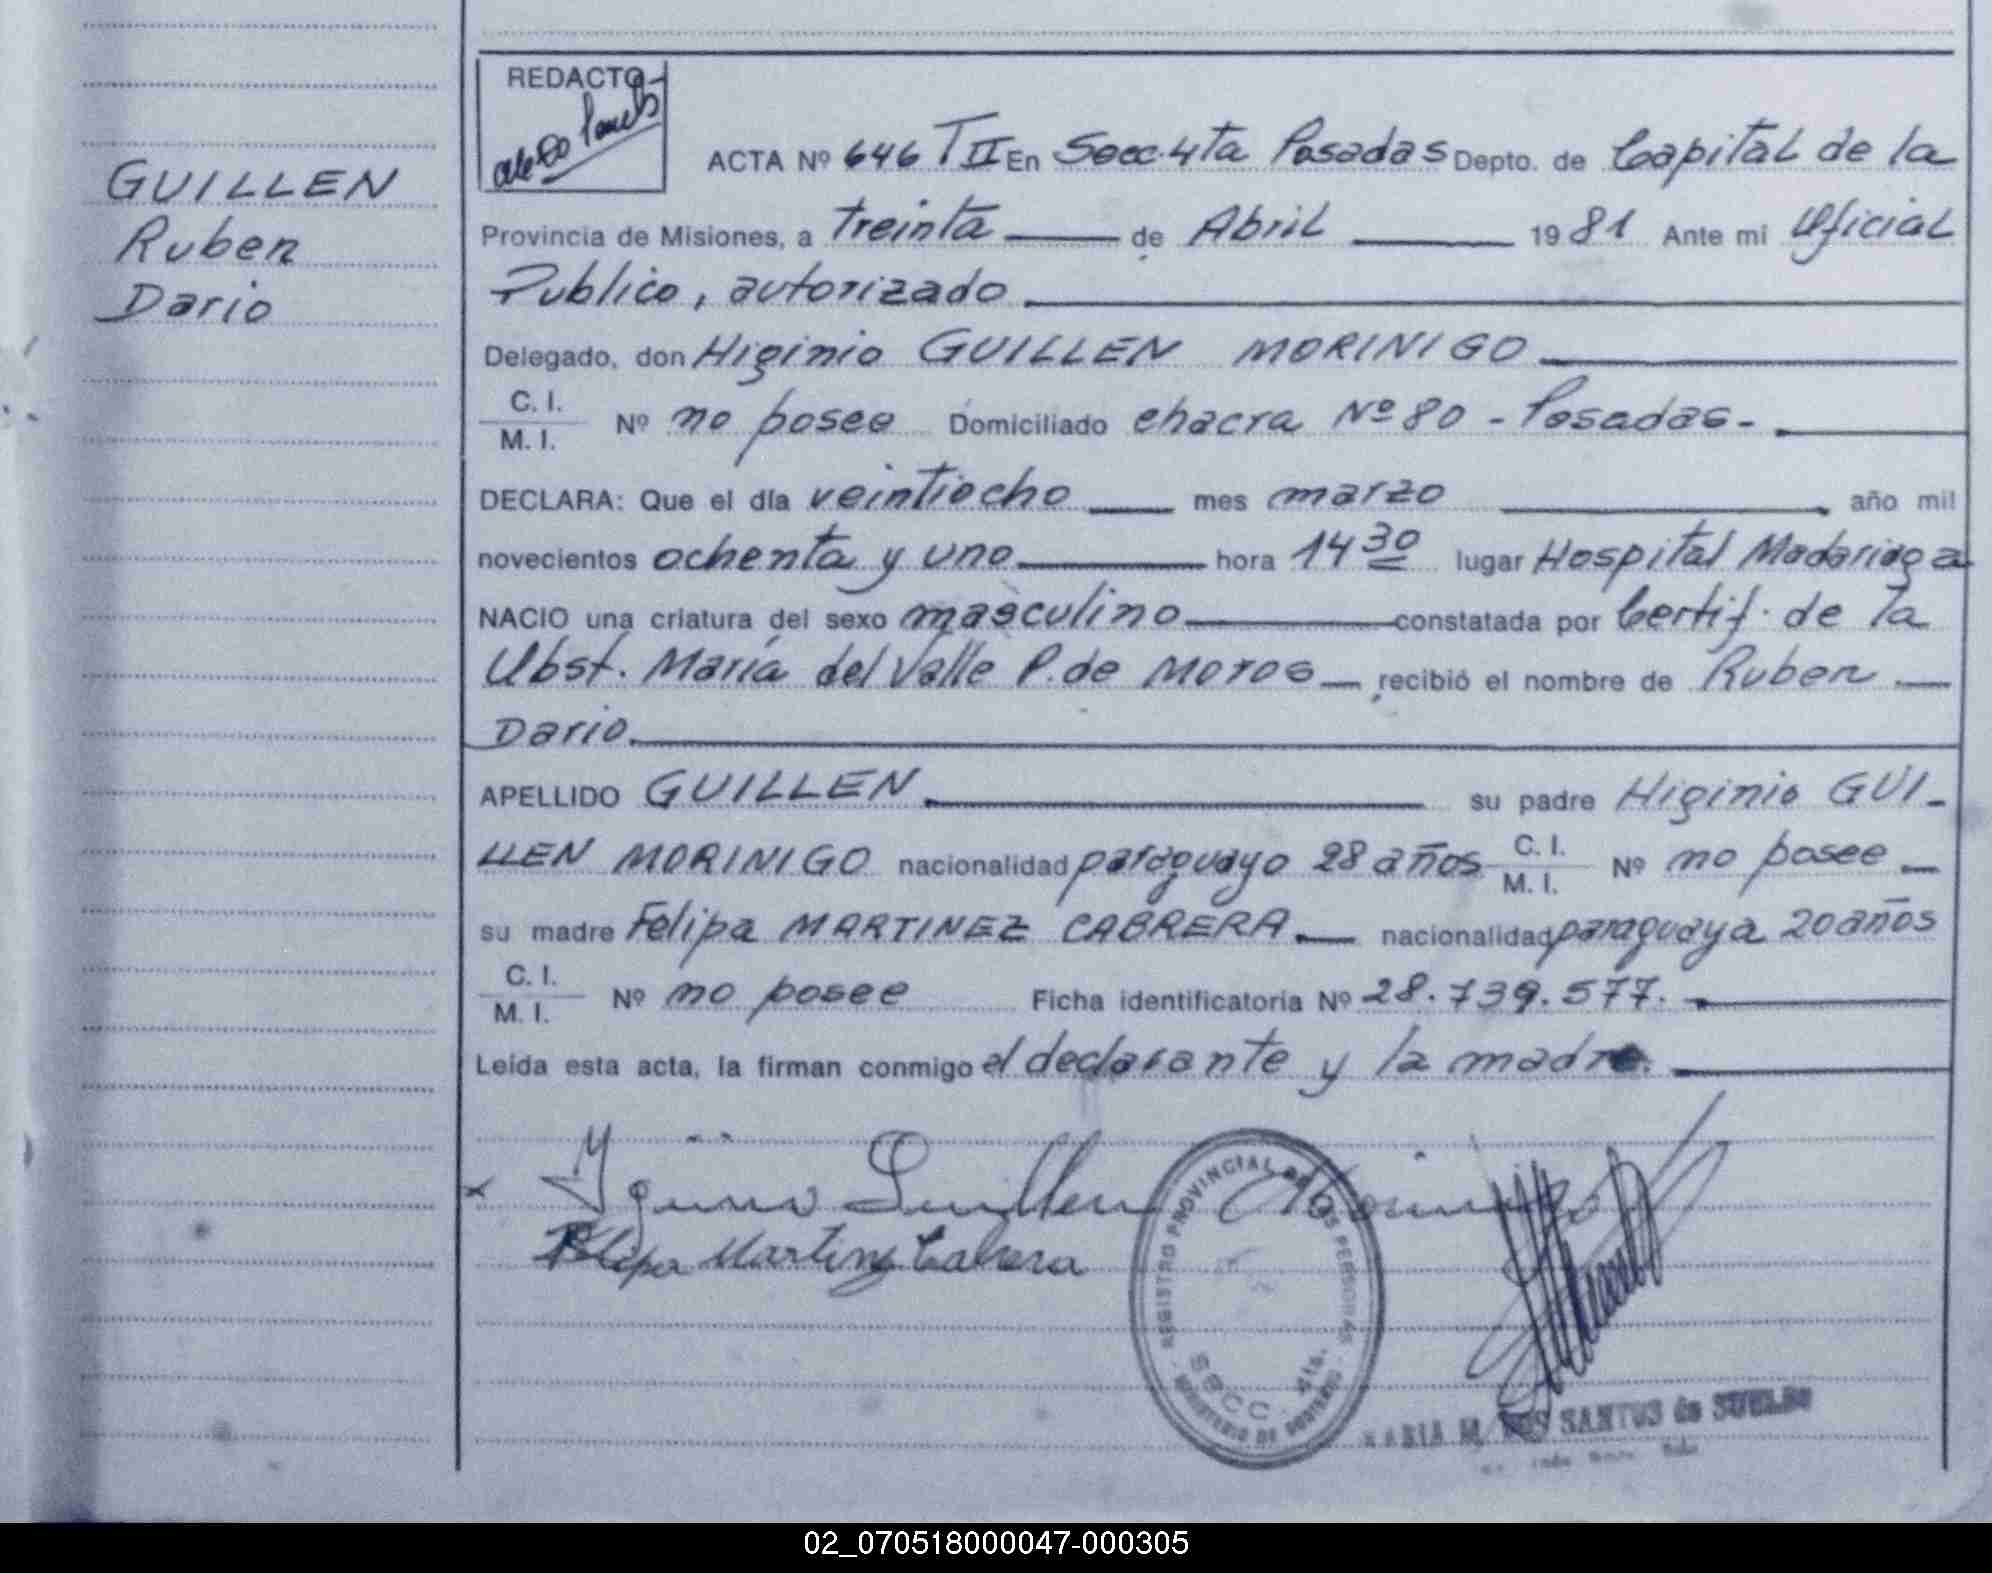 GUILLEN
Ruben
Dario
REDACTO
ACTA Nº 646 TII En Secc. 4ta Posadas Depto. de Capital de la
Provincia de Misiones, a treinta de Abril 1981 Ante mi Oficial
Publico, autorizado
Delegado, don Higinio GUILLEN MORINIGO
C. I.
M. I. Nº no posee Domiciliado chacra Nº 80 - Posadas-.
DECLARA: Que el día veintiocho mes marzo año mil
novecientos ochenta y uno hora 14 30 lugar Hospital Madariaga
NACIO una criatura del sexo masculino constatada por Certif. de la
Obst. María del Valle P. de Moros recibió el nombre de Ruben
Dario.
APELLIDO GUILLEN su padre Higinio GUI-
LLEN MORINIGO nacionalidad paraguayo 28 años C. I. M. I. Nº no posee
su madre Felipa MARTINEZ CABRERA nacionalidad paraguaya 20 años
C. I.
M. I. Nº no posee Ficha identificatoria Nº 28.739.577.
Leída esta acta, la firman conmigo el declarante y la madre.
x Yginio Guillen Morinigo
Felipa Martinez Cabrera
REGISTRO PROVINCIAL DE LAS PERSONAS
SECC. 4ta.
MINISTERIO DE GOBIERNO
MARIA M. DOS SANTOS de
02_070518000047-000305